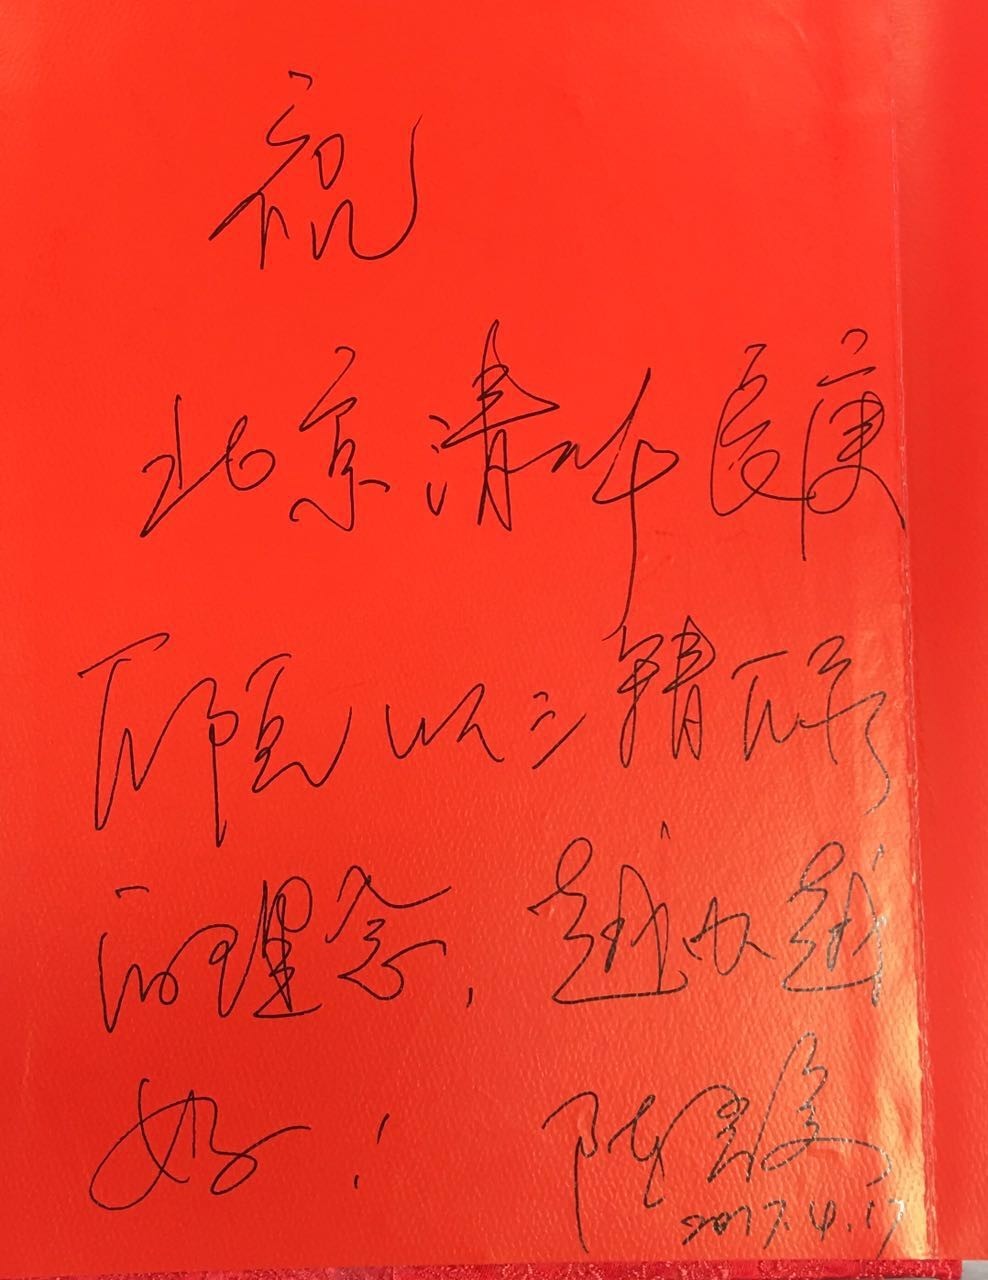 祝
北京清华长庚
医院以三精医疗
的理念，越办越
好！
2017.4.17